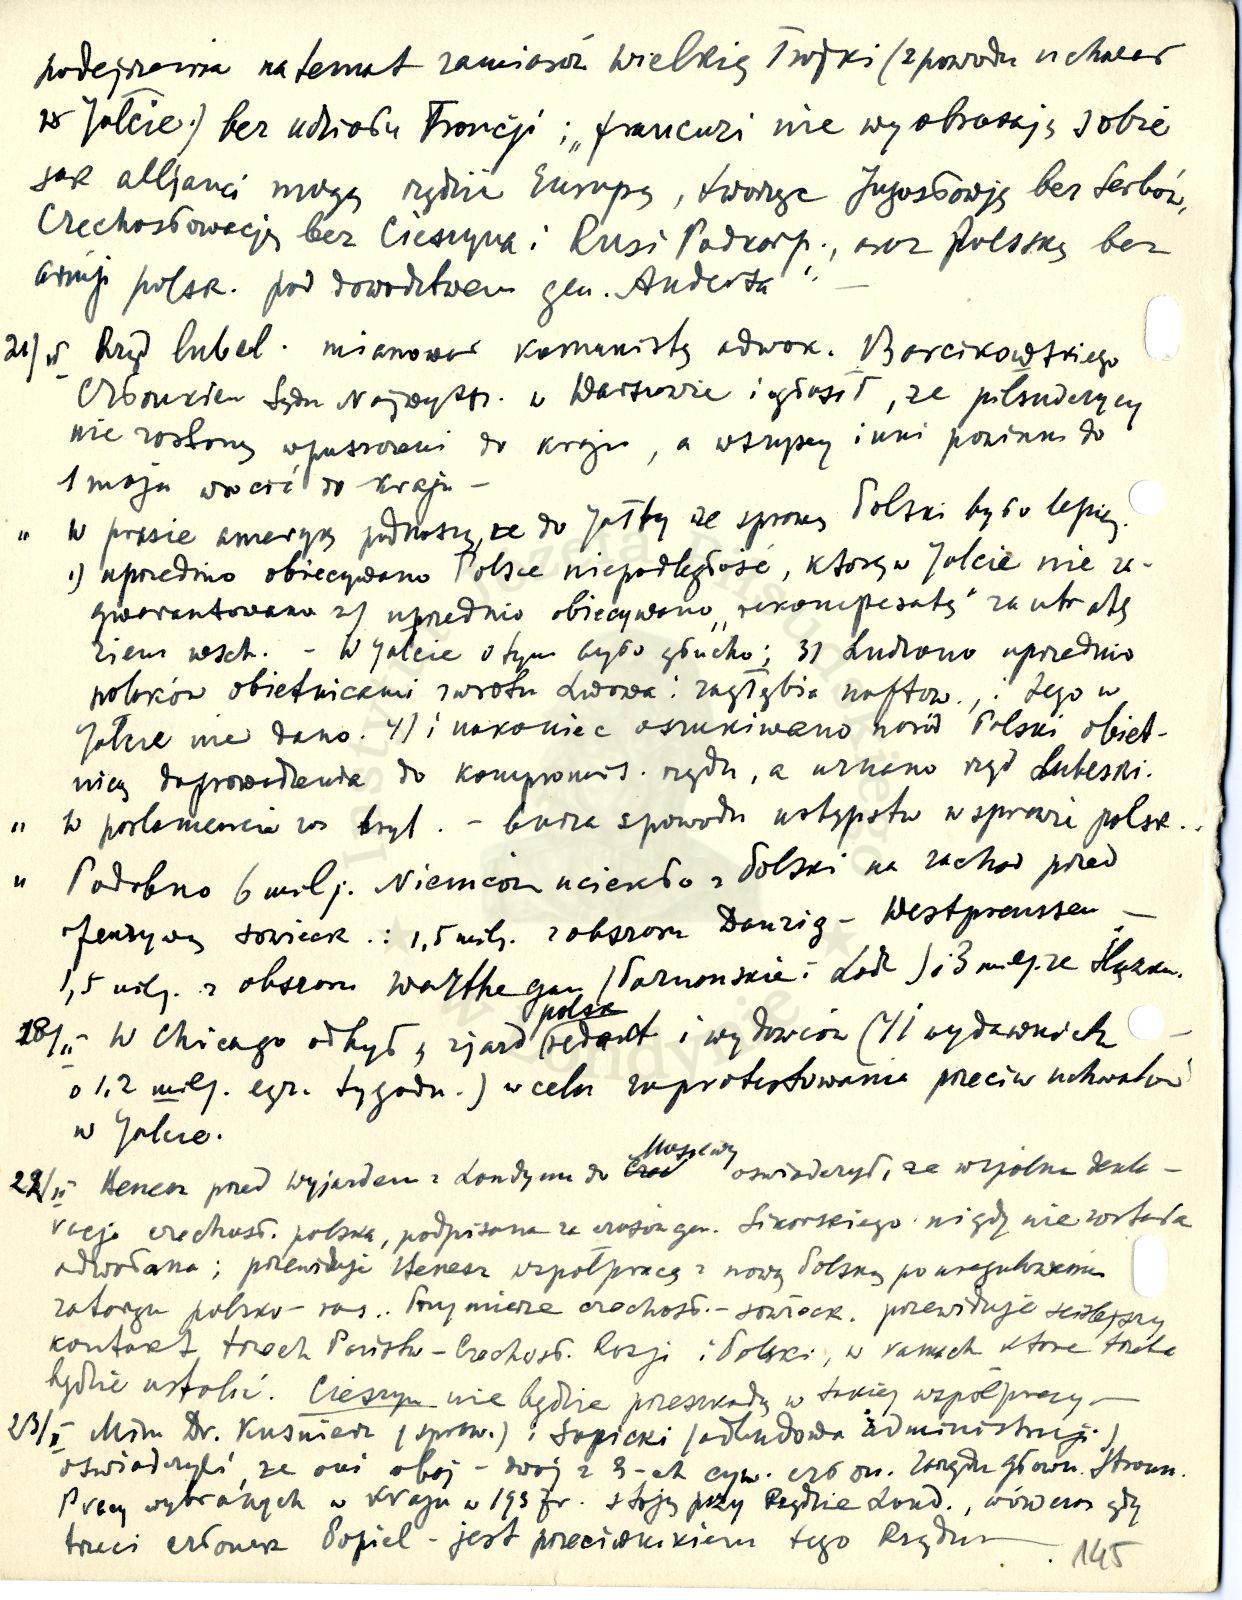 podejrzenia na temat zamiarów Wielkiej Trójki (z powodu uchwał
w Jałcie) bez udziału Francji; „francuzi nie wyobrażają sobie
jak alljanci mogą rządzić Europą, tworząc Jugosłowję bez Serbów,
Czechosłowację bez Cieszyna i Rusi Podkarp., oraz Polskę bez
armji polsk. pod dowództwem gen. Andersa" –
21/II Rząd lubel. mianował komunistę adwok. Barcikowskiego
Członkiem Sądu Najwyższ. w Warszawie i ogłosił, że piłsudczycy
nie zostaną wpuszczeni do kraju, a wszyscy inni powinni do
1 maja wrócić do kraju –
" W prasie ameryk. podnoszą, że do Jałty ze sprawą Polski było lepiej.
1) uprzednio obiecywano Polsce niepodległość, którą w Jałcie nie za-
gwarantowano 2) uprzednio obiecywano „rekompesatę" za utratę
ziem wsch. – w Jałcie o tym było głucho; 3) Łudzono uprzednio
polaków obietnicami zwrotu Lwowa i zagłębia naftow., i tego w
Jałcie nie dano. 4) i nakoniec oszukiwano naród Polski obiet-
nicą doprowadzenia do kompromis. rządu, a uznano rząd Lubelski.
" W parlamencie bryt. – burza z powodu ustępstw w sprawie polsk..
" Podobno 6 milj. Niemców uciekło z Polski na zachód przed
ofenzywą sowieck.: 1,5 milj. z obszaru Danzig – Westpreussen –
1,5 milj. z obszaru Warthegau (Poznańskie i Łódź) i 3 milj. ze Śląska.
18/II – W Chicago odbył ś. zjazd polsk redakt i wydawców (41 wydawnictw
o 1,2 milj. egz. tygodn.) w celu zaprotestowania przeciw uchwałom
w Jałcie.
22/II Benesz przed wyjazdem z Londynu do Moskwy oświadczył, że wspólna dekla-
racja czechosł. polska, podpisana za czasów gen. Sikorskiego nigdy nie została
odwołana; przewiduje Benesz współpracę z nową Polską po uregulowaniu
zatargu polsko-ros.. Przymierze czechosł.-sowieck. przewiduje ściślejszy
kontakt trzech Państw – Czechosł. Rosji i Polski, w ramach które trzeba
będzie ustalić. Cieszyn nie będzie przeszkodą w takiej współpracy –
23/II Min. Dr. Kuśnierz (spraw.) i Sopicki (odbudowa administracji)
oświadczyli, że oni obaj – dwaj z 3-ch człon. Zarządu główn. Stronn.
Pracy wybranych w kraju w 1937r. stoją przy Rządzie Lond., wówczas gdy
trzeci członek Popiel – jest przeciwnikiem tego Rządu –
145